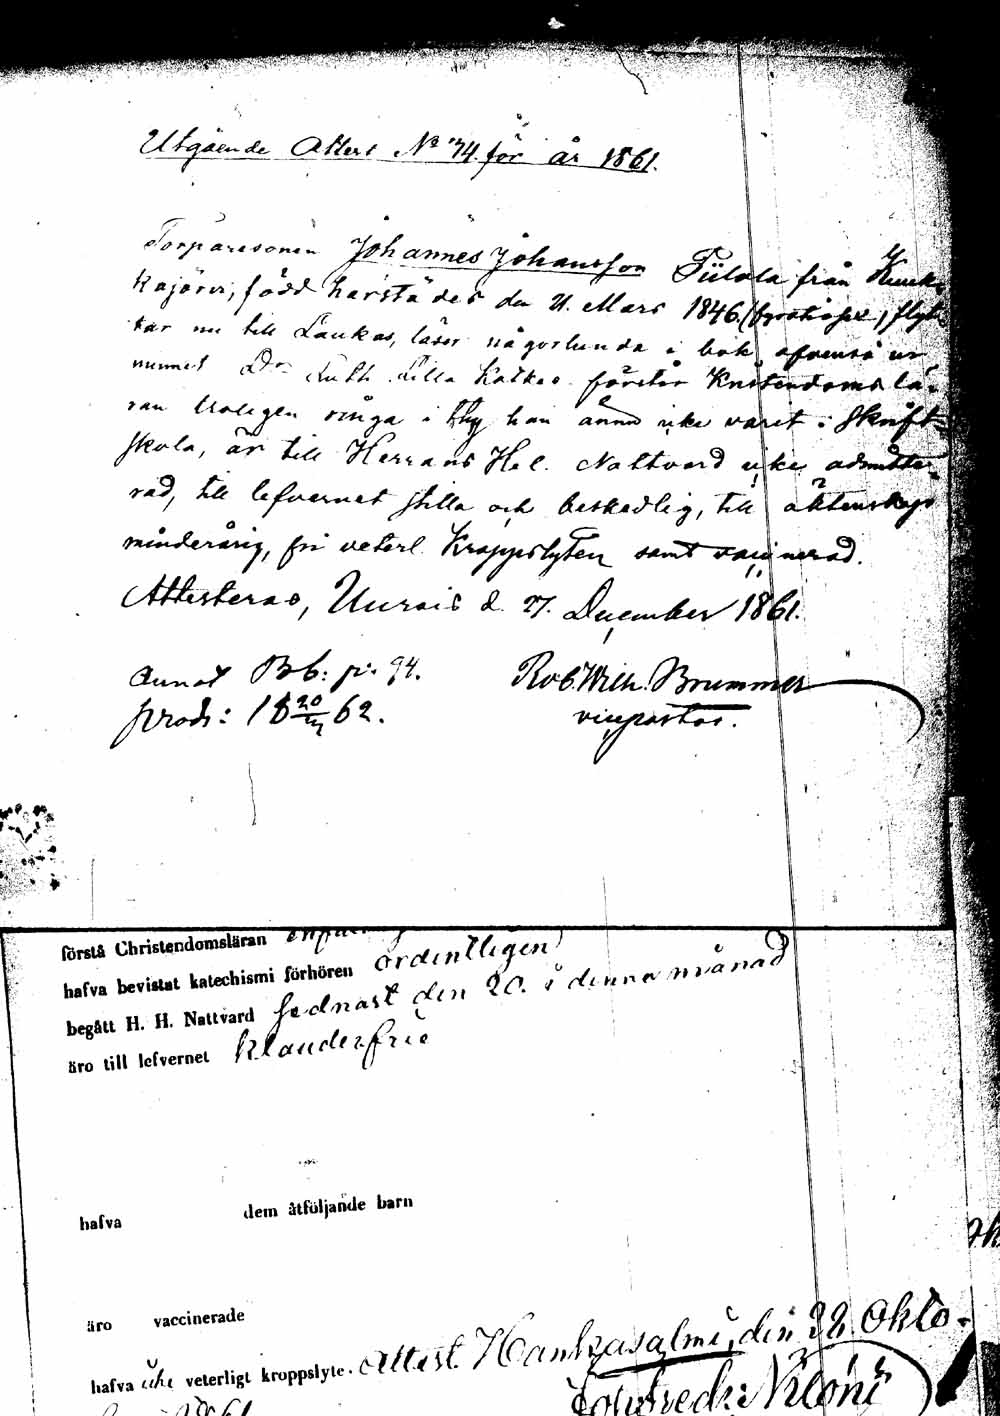 Utgående Attest No 74. för år 1861.
Torparesonen Johannes Johansson Piilola från Kuuk-
kajärvi, född härstädes den 21. Mars 1846. flyt-
tar nu till Laukas, läser någorlunda i bok, äfvenså ur
minnet Dr Luth. Lilla Katkes förstår Kristendoms lä-
ran troligen ringa i thy han ännu icke varit i skrift-
skola, är till Herrans Hel. Nattvard icke admitte-
rad, till lefvernet stilla och beskedlig, till äktenskap
minderårig, fri veterl. Kroppslyten samt vaccinerad.
Attesteras, Uurais d. 27. December 1861.
Annot Bb: p. 94. Rob. Wilh. Brummer
prod: 18 20 62. vicepastor.
förstå Christendomsläran
hafva bevistat katechismi förhören ordentligen
begått H. H. Nattvard sednast den 20. i denna månad
äro till lefvernet klanderfrie
hafva dem åtföljande barn
äro vaccinerade
hafva icke veterligt kroppslyte. Attest. Hankasalmi, den 22 Okto-
1861